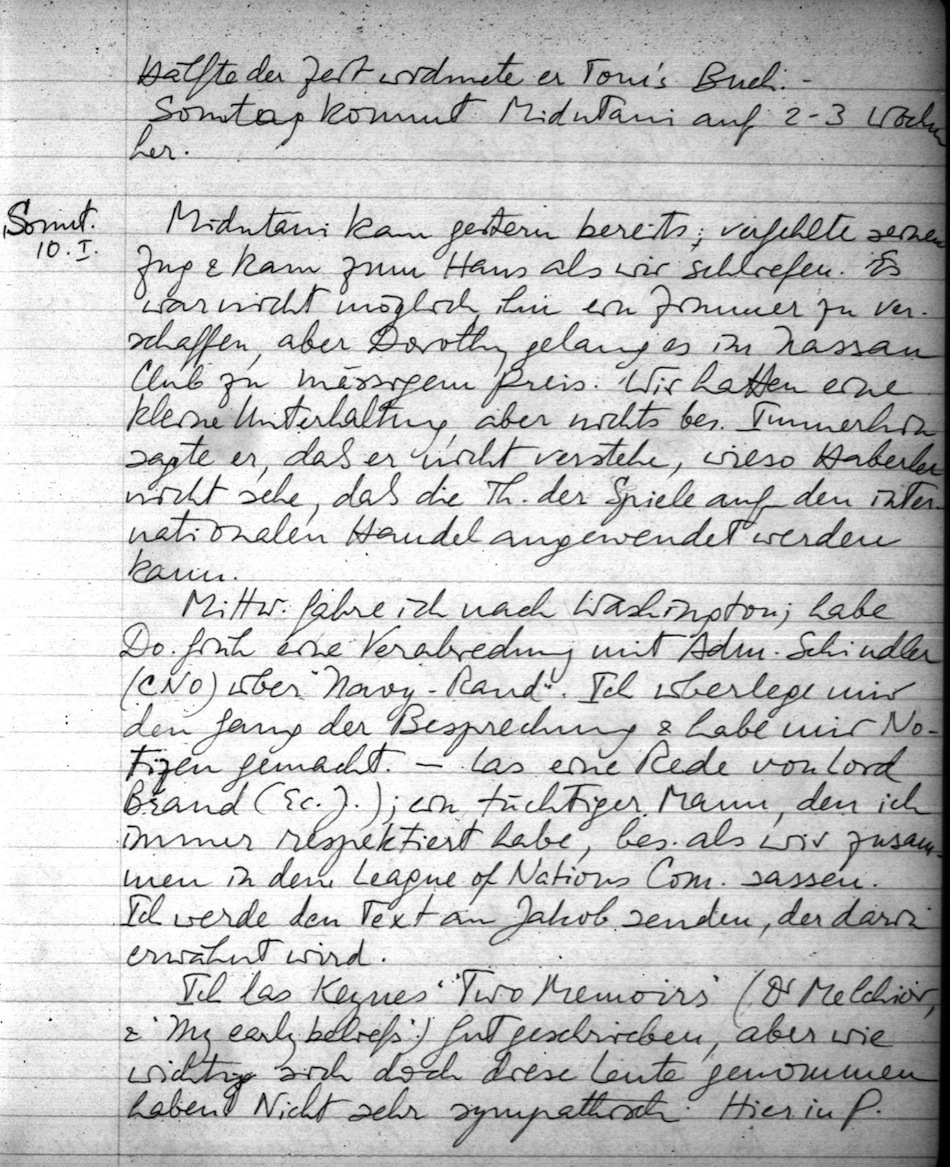 Hälfte der Zeit widmete er Tom's Buch. -
Sonntag kommt Midutani auf 2-3 Wochen
her.
Sonnt.
10. I.
Midutani kam gestern bereits; verfehlte seinen
Zug & kam zum Haus als wir schliefen. Es
war nicht möglich ihm ein Zimmer zu ver-
schaffen, aber Dorothy gelang es im Nassau
Club zu mässigem Preis. Wir hatten eine
kleine Unterhaltung, aber nichts bes. Immerhin
sagte er, daß er nicht verstehe, wieso Haberler
nicht sehe, daß die Th. der Spiele auf den inter-
nationalen Handel angewendet werden
kann.
Mittw. fahre ich nach Washington; habe
Do. früh eine Verabredung mit Adm. Schindler
(CNO) über "Navy-Rand". Ich überlege mir
den Gang der Besprechung & habe mir No-
tizen gemacht. — Las eine Rede von Lord
Brand (Ec. J.); ein tüchtiger Mann, den ich
immer respektiert habe, bes. als wir zusam-
men in dem League of Nations Com. sassen.
Ich werde den Text an Jakob senden, der darin
erwähnt wird.
Ich las Keynes 'Two Memoirs' (Dr Melchior,
& 'My early beliefs') Gut geschrieben, aber wie
wichtig sich doch diese Leute genommen
haben! Nicht sehr sympathisch. Hier in P.